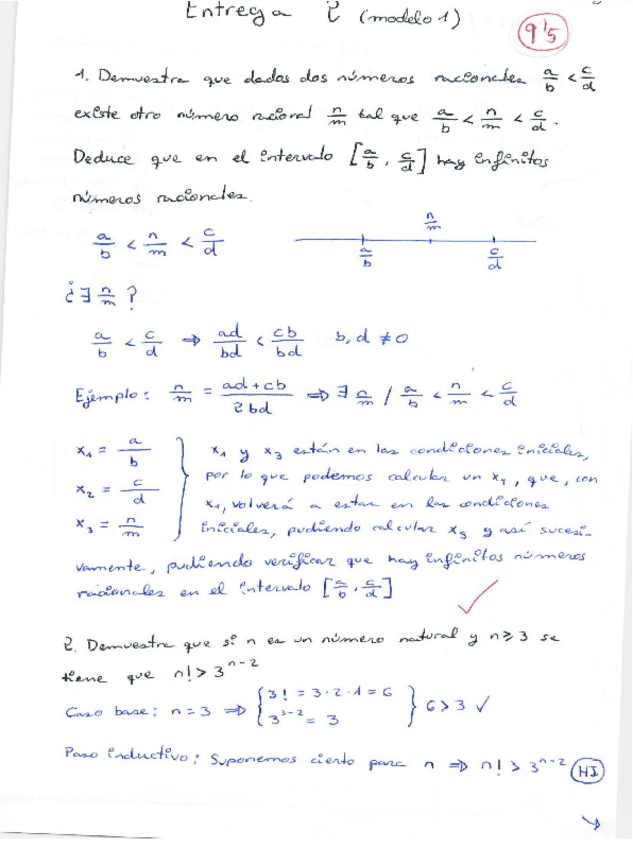 Entrega 2 (modelo 1)
9'5
1. Demuestra que dados dos números racionales a/b < c/d
existe otro número racional n/m tal que a/b < n/m < c/d.
Deduce que en el intervalo [a/b, c/d] hay infinitos
números racionales.
a/b < n/m < c/d
n/m
a/b c/d
¿∃ n/m?
a/b < c/d ⇒ ad/bd < cb/bd b, d ≠ 0
Ejemplo: n/m = ad+cb/2bd ⇒ ∃ n/m / a/b < n/m < c/d
x₁ = a/b
x₂ = c/d
x₃ = n/m
x₁ y x₃ están en las condiciones iniciales,
por lo que podemos calcular un x₄, que, con
x₁, volverá a estar en las condiciones
iniciales, pudiendo calcular x₅ y así sucesi-
vamente, pudiendo verificar que hay infinitos números
racionales en el intervalo [a/b, c/d]
2. Demuestra que si n es un número natural y n ≥ 3 se
tiene que n! > 3^(n-2)
Caso base: n = 3 ⇒ { 3! = 3·2·1 = 6
3^(3-2) = 3 } 6 > 3 ✓
Paso inductivo: Suponemos cierto para n ⇒ n! > 3^(n-2) (HI)